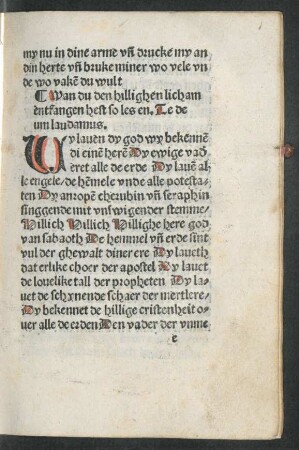 my nu in dine arme vñ drucke my an
din herte vñ bruke miner wo vele vn̄
de wo vakē du wult
¶ Wan du den hillighen licham
entfangen hest so les en. Te de
um laudamus.
WY lauen dy god wy bekennē
di einē herē Dy ewige vad̄
eret alle de erde Dy lauē al
le engele / de hēmele vnde alle potesta
ten Dy anropē cherubin vñ seraphin
singgende mit vnswigender stemme /
Hillich Hillich Hillighe here god
van sabaoth De hemmel vñ erde sint
vul der ghewalt diner ere Dy laueth
dat erlike choer der apostel Dy lauet
de louelike tall der propheten Dy la
uet de schynende schaer der mertlere /
Dy bekennet de hillige cristenheit o
uer alle de erden Den vader der vnme
e